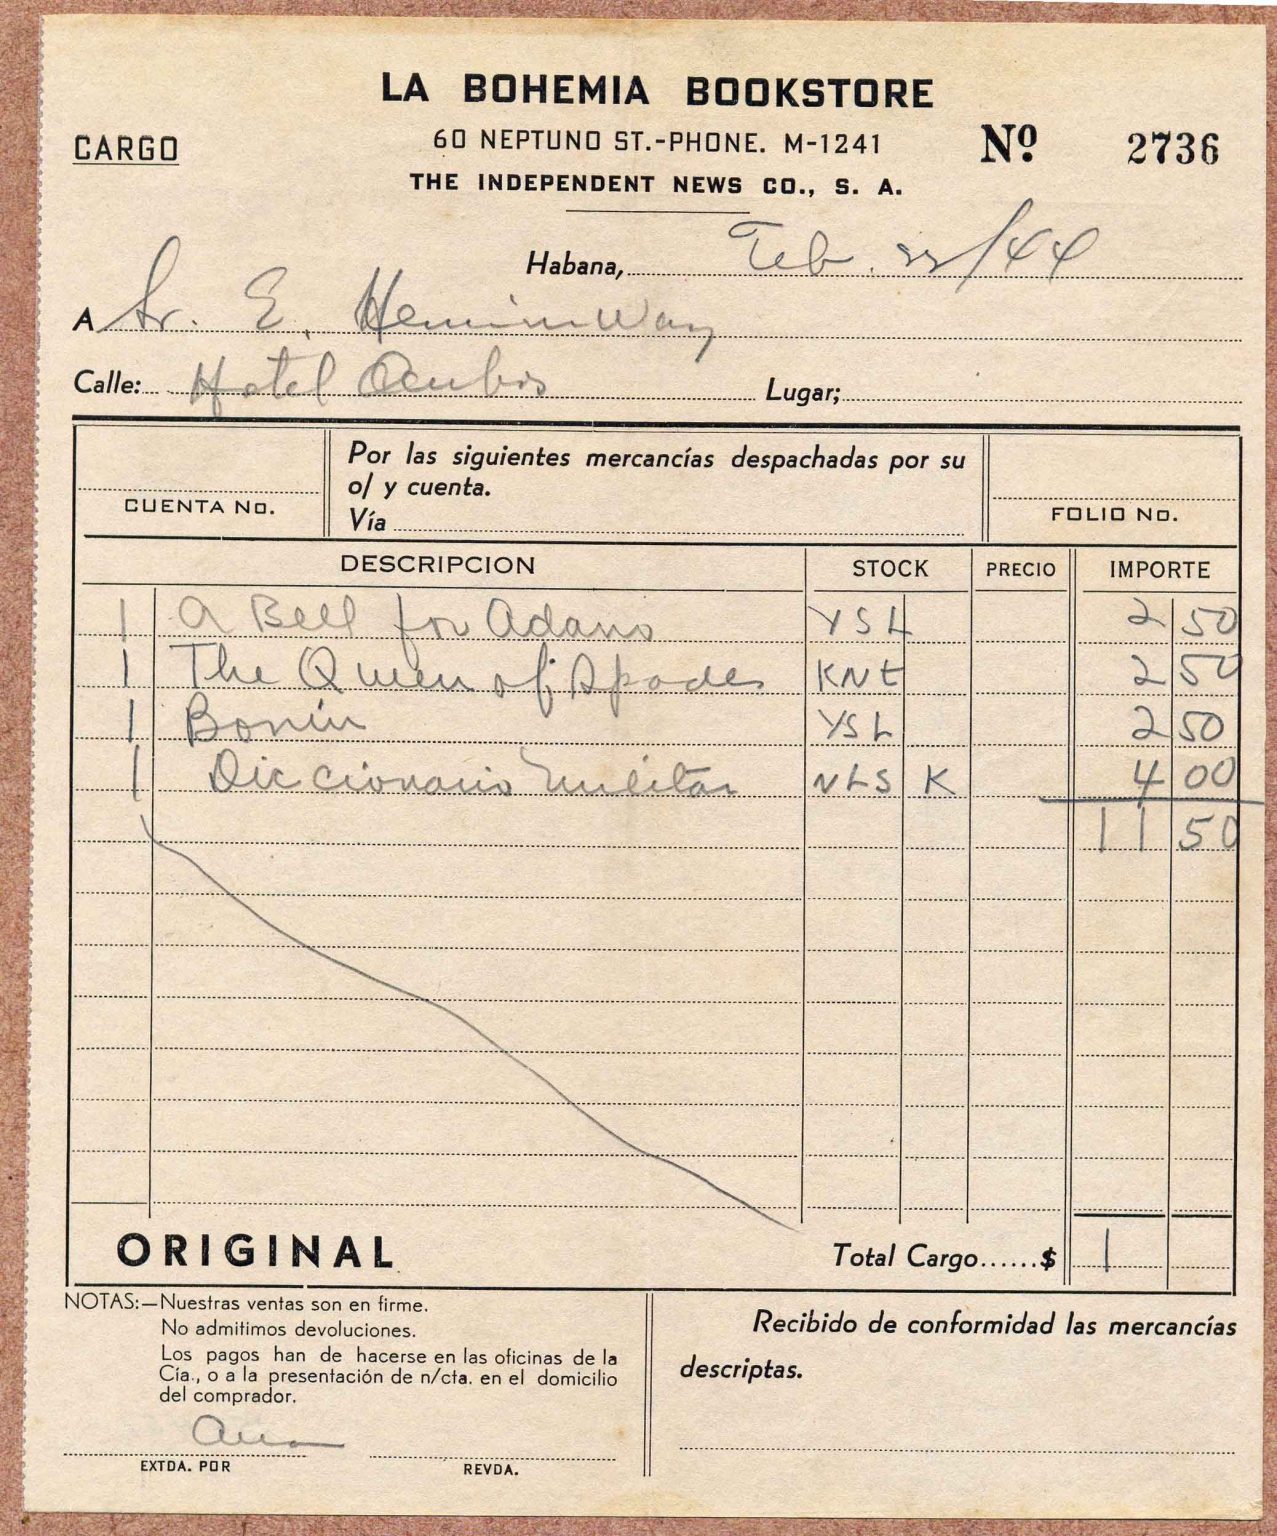 LA BOHEMIA BOOKSTORE
CARGO
60 NEPTUNO ST.-PHONE. M-1241
Nº 2736
THE INDEPENDENT NEWS CO., S. A.
Habana, Feb. 22/44
A Sr. E. Heminway
Calle: Hotel Lugar;
CUENTA No.
Por las siguientes mercancías despachadas por su
o/ y cuenta.
Vía
FOLIO No.
DESCRIPCION STOCK PRECIO IMPORTE
1 A Bell for Adano YSL 2 50
1 The Queen of Spades KNt 2 50
1 YSL 2 50
1 Diccionario Militar NLS K 4 00
11 50
ORIGINAL
Total Cargo......$ 1
NOTAS:—Nuestras ventas son en firme.
No admitimos devoluciones.
Los pagos han de hacerse en las oficinas de la
Cía., o a la presentación de n/cta. en el domicilio
del comprador.
EXTDA. POR
REVDA.
Recibido de conformidad las mercancías
descriptas.